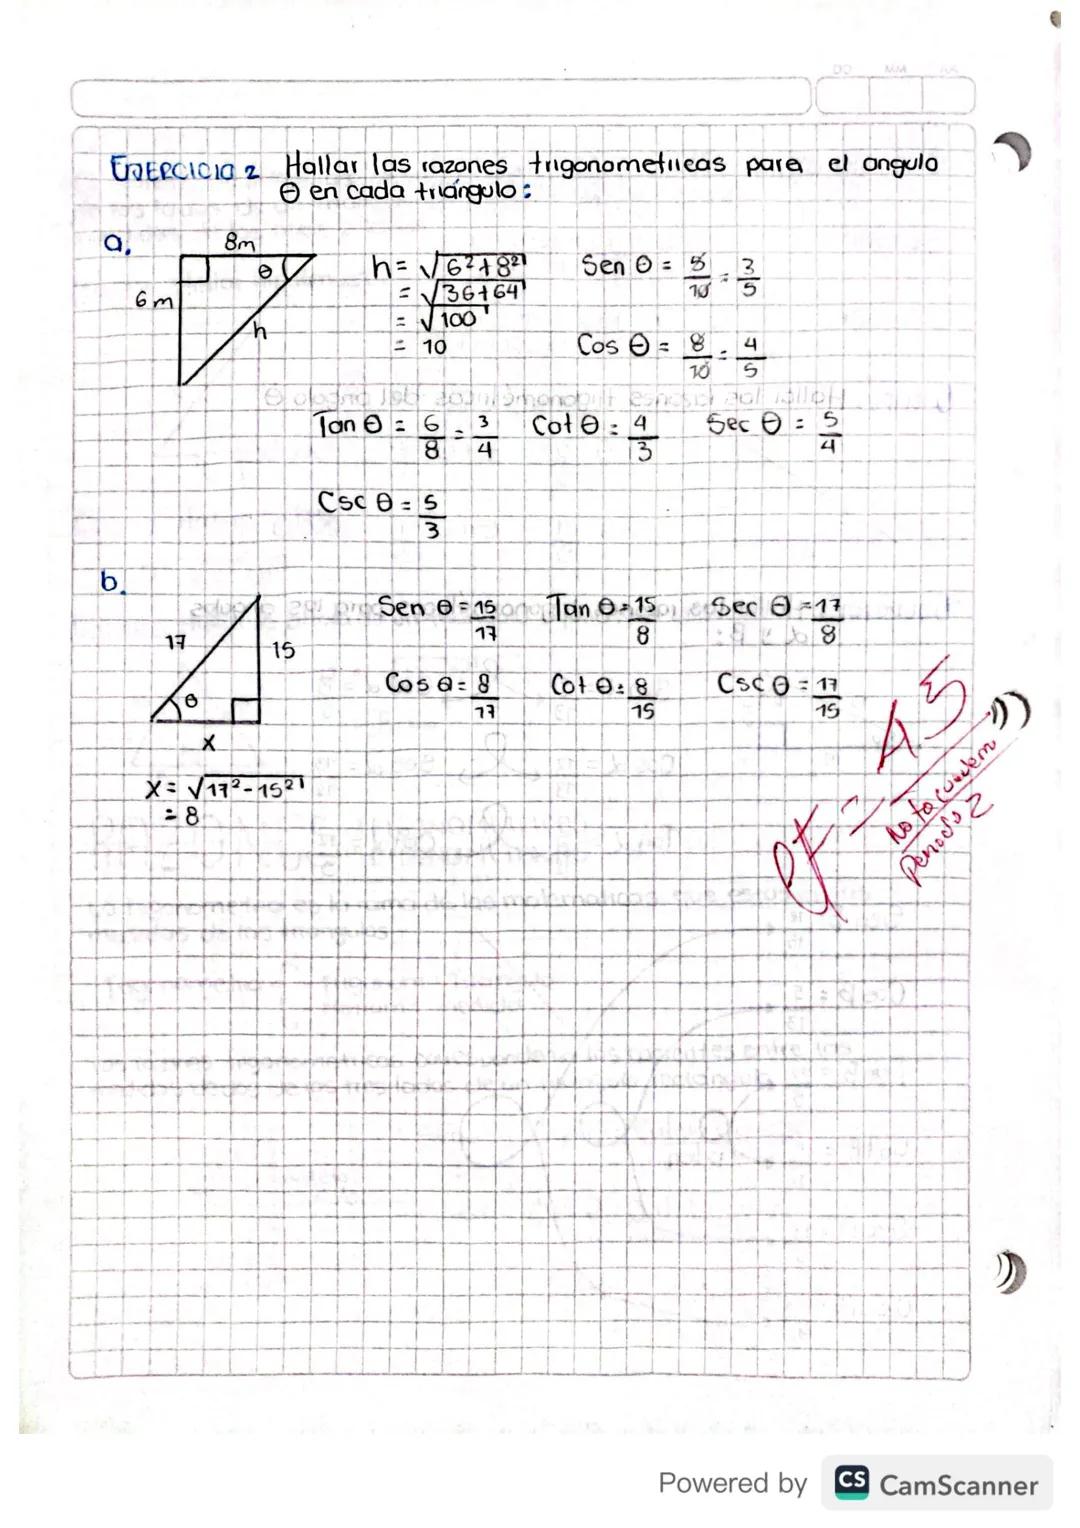 DD MM AA
EJERCICIO 2 Hallar las razones trigonometricas para el angulo
θ en cada triángulo:
a.
8m
θ
6m
h
h = √6²+8²
= √36+64
= √100
= 10
Sen θ = 6/10 = 3/5
Cos θ = 8/10 = 4/5
Tan θ = 6/8 = 3/4 Cot θ = 4/3 Sec θ = 5/4
Csc θ = 5/3
b.
17
15
θ
x
Sen θ = 15/17 Tan θ = 15/8 Sec θ = 17/8
Cos θ = 8/17 Cot θ = 8/15 Csc θ = 17/15
x = √17²-15²
= 8
Nota
Periodo 2
Powered by CS CamScanner